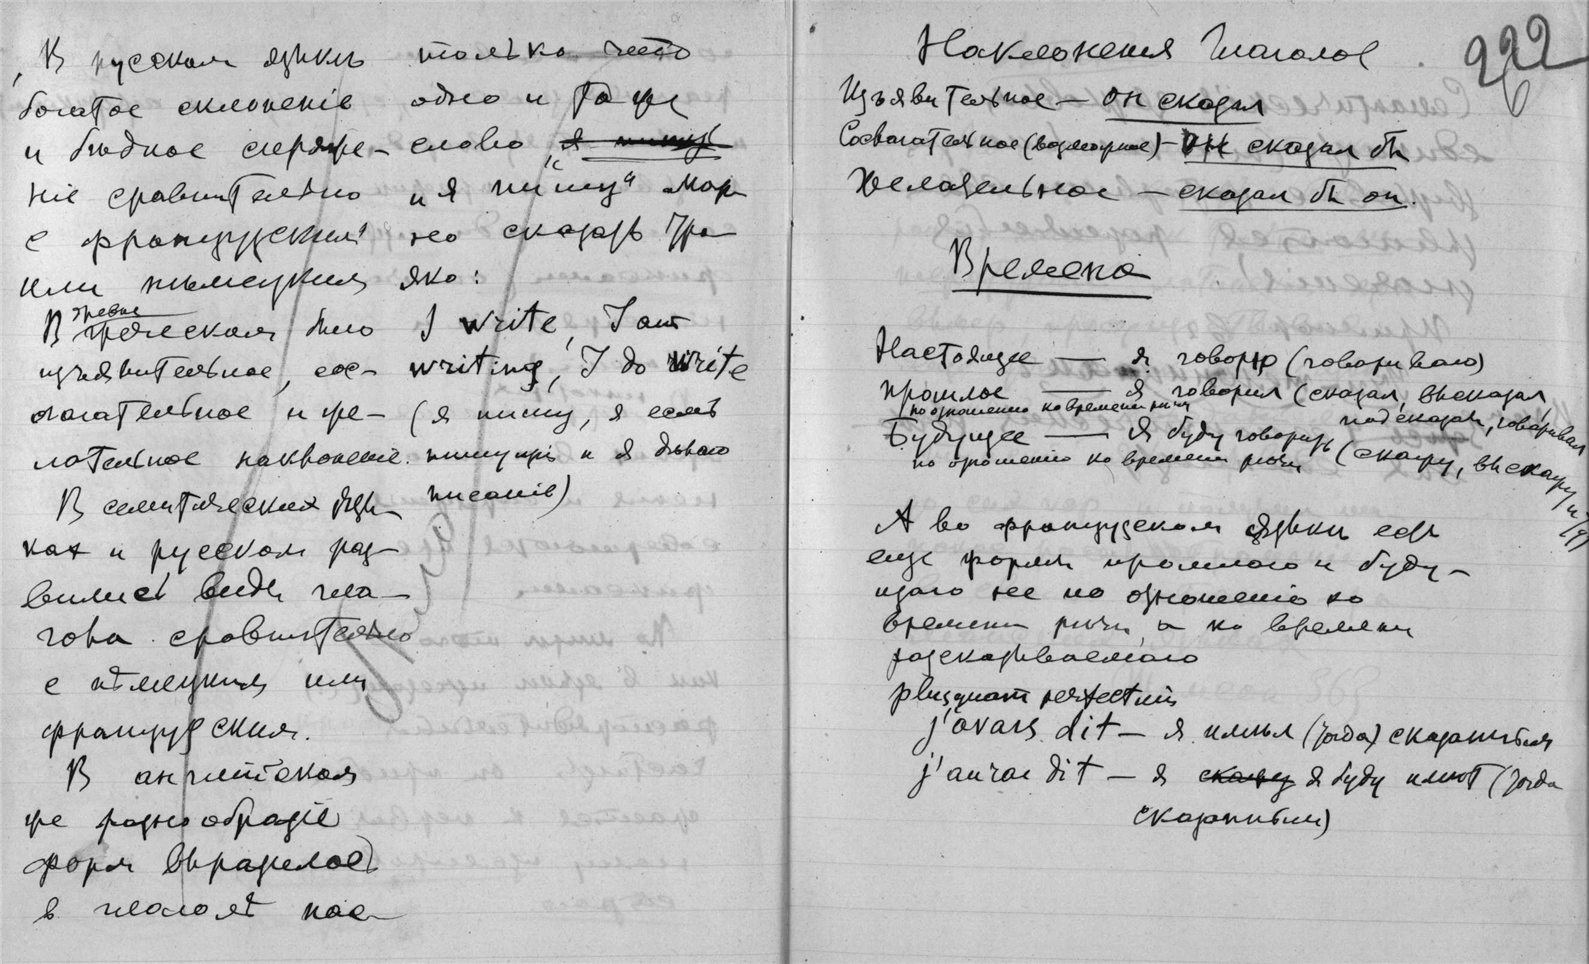 В русском языкѣ
богатое склоненіе
и бѣдное спряже-
ніе сравнительно
с французским
или нѣмецким
древне
В греческом было
изъявительное, сос-
лагательное и же-
лательное наклоненіе.
В семитических язы-
ках и русском раз-
вились виды гла-
гола сравнительно
с нѣмецким или
французским.
В англійском
же разнообразіе
форм выразилось
в глаголѣ нас-
только что
одно и то же
слово я пишу
"я пишу" мож-
но сказать тро-
яко:
I write, I am
writing, I do write
(я пишу, я есмь
пишущій и я дѣлаю
писаніе)
222
Наклоненія глаголов
Изъявительное — он сказал
Сослагательное (возможное) — он сказал бы
Желательное — сказал бы он.
Времена
Настоящее — я говорю (говариваю)
прошлое — я говорил (сказал, высказал,
по отношению ко времени рѣчи
подсказал, говаривал
Будущее — я буду говорить (скажу, выскажу и
по отношенію ко времени рѣчи
А во французском языкѣ есть
еще формы прошлого и буду-
щаго не по отношенію ко
времени рѣчи, а ко времени
разсказываемаго
plusquam perfectum
j'avais dit — я имѣл (тогда) сказанным
j'aurai dit — я скажу я буду имѣть (тогда
сказанным)